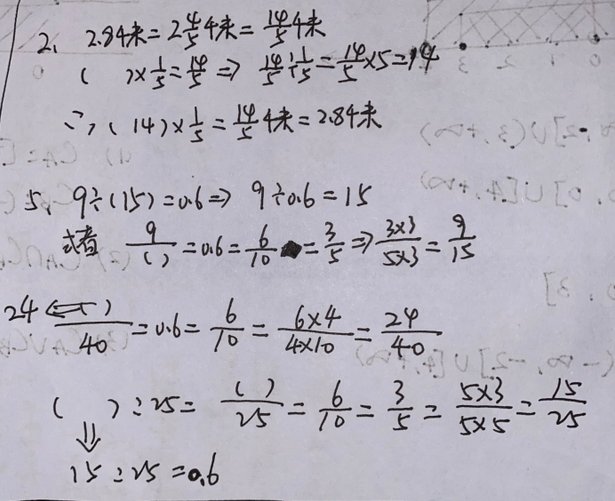 2、 2.84米=2 4/5 4米= 14/5 4米
( )×1/5=14/5 ⇒ 14/5÷1/5=14/5×5=14
∴ ( 14)×1/5=14/5 4米=2.84米
5、 9÷(15)=0.6⇒ 9÷0.6=15
或者 9/( )=0.6=6/10=3/5⇒3×3/5×3=9/15
24 ⇐ ( )/40=0.6=6/10=6×4/4×10=24/40
( ):25= ( )/25=6/10=3/5=5×3/5×5=15/25
⇓
15:25=0.6